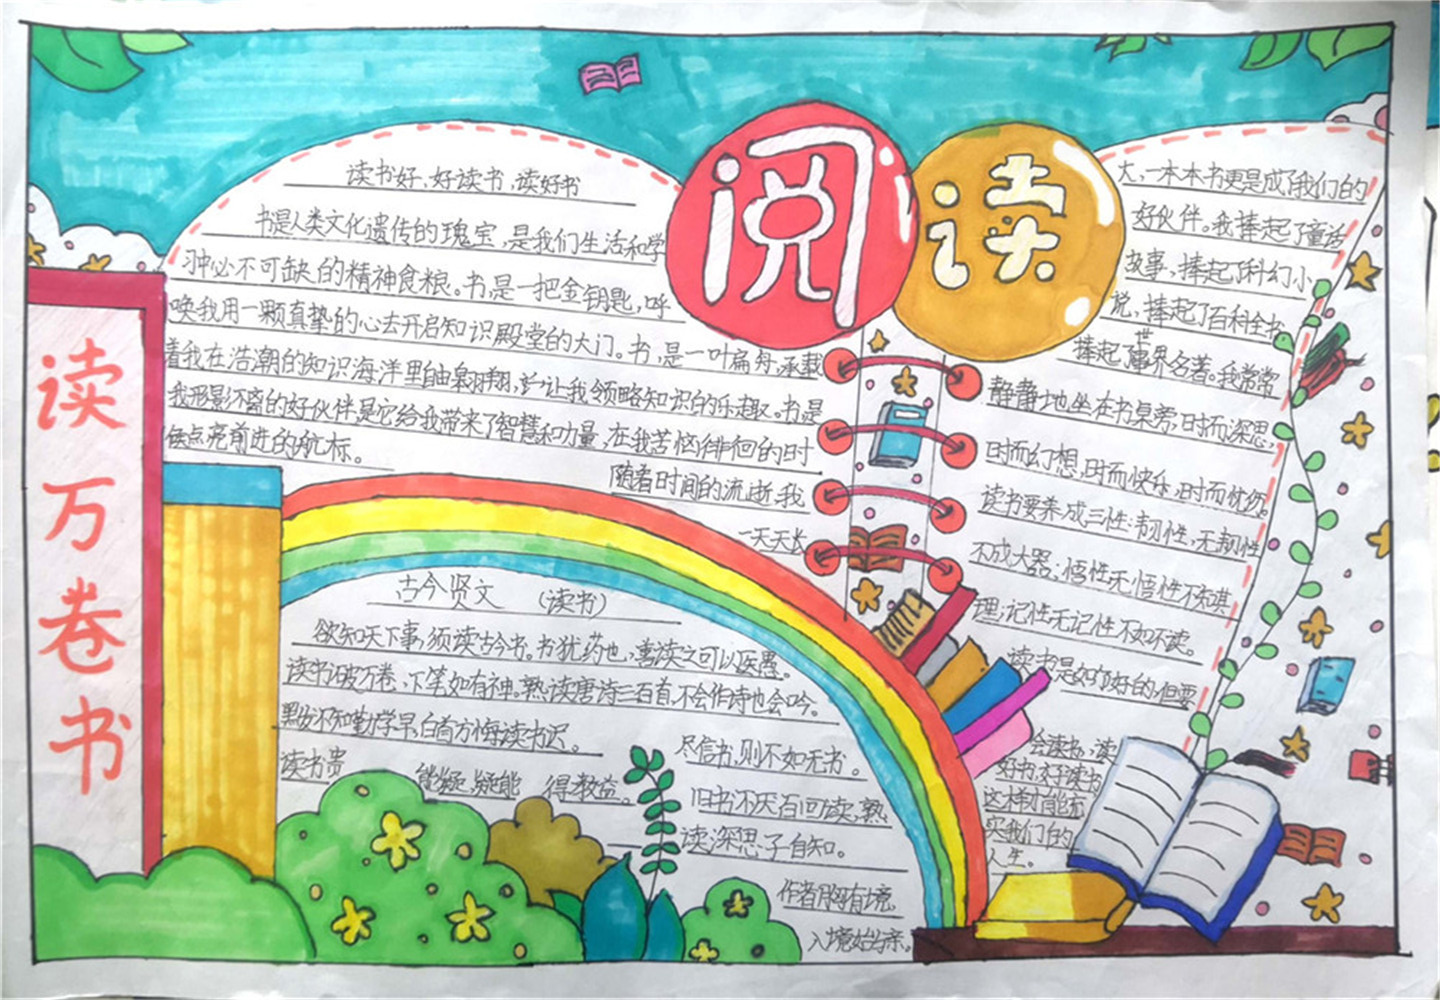 阅读
读万卷书
读书好,好读书,读好书
书是人类文化遗传的瑰宝,是我们生活和学
习中必不可缺的精神食粮。书是一把金钥匙,呼
唤我用一颗真挚的心去开启知识殿堂的大门。书是一叶扁舟,承载
着我在浩潮的知识海洋里自由翱翔,让我领略知识的乐趣。书是
我形影不离的好伙伴,是它给我带来了智慧和力量,在我苦恼徘徊的时
候点亮前进的航标。
随着时间的流逝,我
一天天长
大,一本本书更是成了我们的
好伙伴。我捧起了童话
故事,捧起了科幻小
说,捧起了百科全书
捧起了世界名著。我常常
静静地坐在书桌旁,时而深思,
时而幻想,时而快乐,时而忧伤。
读书要养成三性:韧性,无韧性
不成大器;悟性无悟性不知其
理;记性无记性不如不读。
读书是好的,但要
会读书,读
好书,好读书
这样才能充
实我们的
人生。
古今贤文 (读书)
欲知天下事,须读古今书。书犹药也,善读之可以医愚。
读书破万卷,下笔如有神。熟读唐诗三百首,不会作诗也会吟。
黑发不知勤学早,白首方悔读书迟。
读书贵 能疑,疑能 得教益。
尽信书,则不如无书。
旧书不厌百回读,熟
读深思子自知。
作者胸有境
入境始与亲。